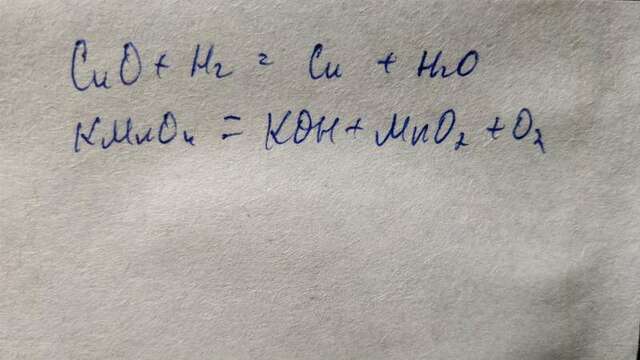 CuO + H₂ = Cu + H₂O
KMnO₄ = KOH + MnO₂ + O₂